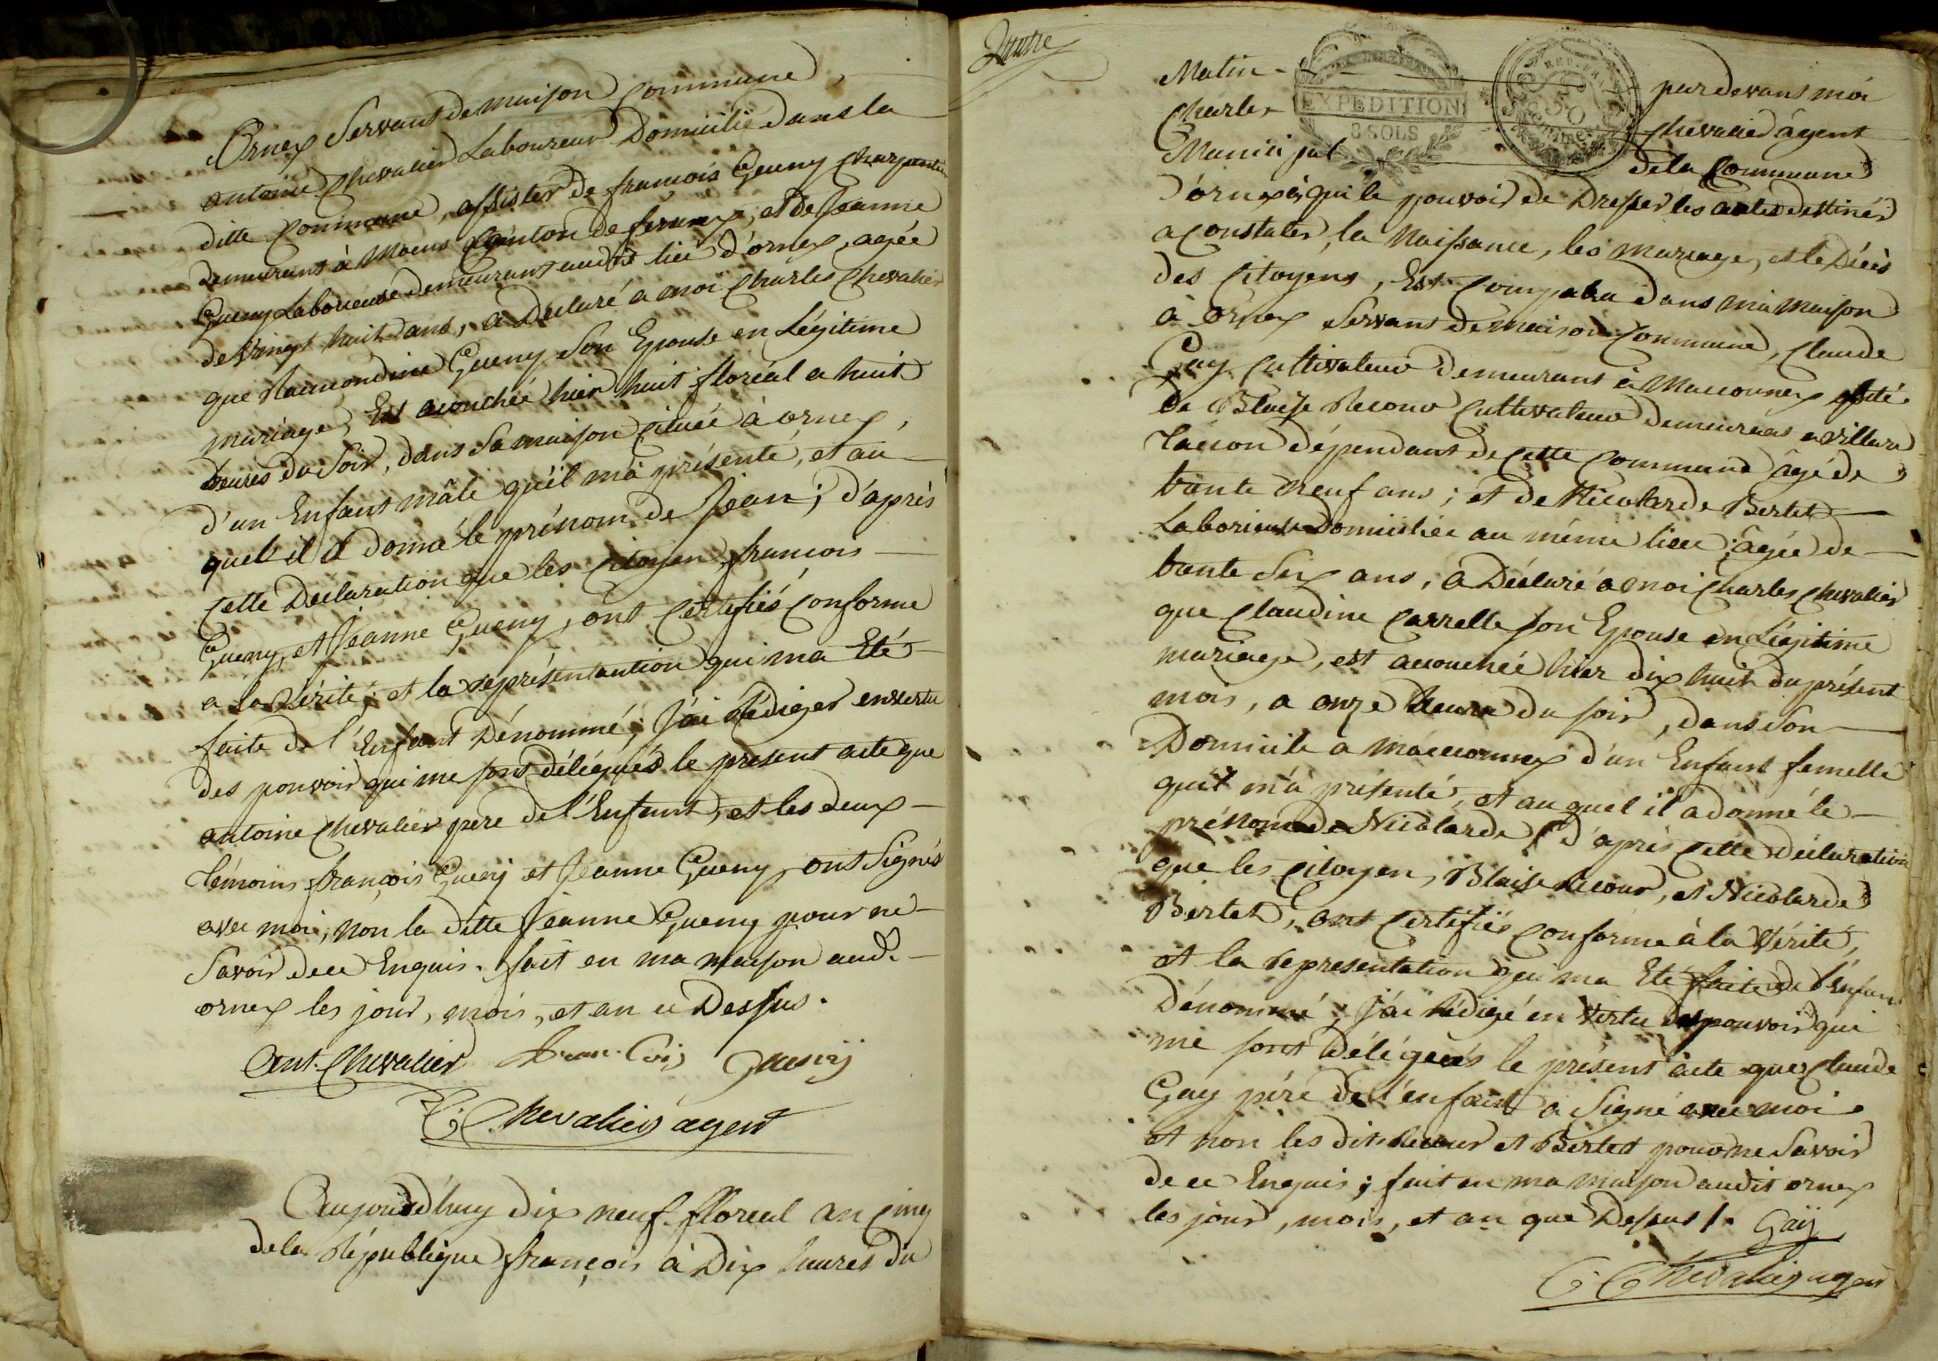 Ornex Servant de maison Commune
antoine Chevalier Laboureur Domicilié dans la
ditte Commune, assister de francois Gueny Charpentier
demeurant à Moens Canton de fernex, et de Jeanne
Gueny Laborieuse demeurant audit lieu d'ornex, agée
de vingt huit ans, a Declaré a moi Charles Chevalier
que Raimondine Gueny Son Epouse en Légitime
mariage, Est acouchée hier huit floréal a huit
heures du Soir, dans Sa maison Cituée à ornex,
d'un Enfant mâle qu'il m'a présenté, et au
quel il a donné le prénom de Jean; d'après
Cette Declaration que les Citoyen francois
Gueny, et Jeanne Gueny, ont Certifiés Conforme
a la vérité; et la représentaution qui ma Eté
faite de l'Enfant Dénommé; J'ai Rédiger en vertu
des pouvoir qui me sont délégués le present acte que
antoine Chevalier pere de l'Enfant, et les deux
témoins françois Guenÿ et Jeanne Gueny, ont Signés
avec moi, non la ditte Jeanne Gueny pour ne
Savoir de ce Enquis. fait en ma maison aud.
ornex les jour, mois, et an ci Dessus.
Ant. Chevalier Fran. Cois Guenÿ
C. Chevalier agent
Aujourd'huy dix neuf floreal an Cinq
de la République françois à Dix heures du
Matin par devant moi
EXPEDITION
8 SOLS
REP. FRA.
Charles Chevalier agent
Municipal de la Commune
D'ornex à qui le pouvoir de Dresser les actes destinés
a Constater, la Naissance, les mariage, et le Décès
des Citoyens, Est Comparu dans ma maison
à Ornex Servant de maison Commune, Claude
Gay Cultivateur demeurant à Maconnex assité
de Blaise Recour Cultivateur demeurant a villard
tacon dépendant de Cette Commune âgé de
trante neuf ans; et de Nicolarde Bertet
Laborieuse Domicihée au même lieu; âgée de
trante Six ans, a Déclaré a moi Charles Chevalier
que Claudine Carrelle son Epouse en Légitime
mariage, est acouchée hier dix huit du présent
mois, a onze heure du soir, dans son
Domicile a maconnex d'un Enfant femelle
qu'il m'a présenté, et au quel il a donné le
prénom de Nicolarde, d'après Cette Déclaration
que les Citoyen, Blaise Recour, et Nicolarde
Bertet, ont Certifiés Conforme à la Vérité,
et la représentation qui ma Eté faite de l'Enfant
Dénommé; j'ai Rédigé en Vertu des pouvoir qui
me sont Délégués le présent acte que Claude
Gay père de l'enfant a Signé avec moi
et non les dits Recour et Bertet pour ne Savoir
de ce Enquis; fait en ma maison audit ornex
les jour, mois, et an que Dessus /. Gaÿ
C. Chevalier agent